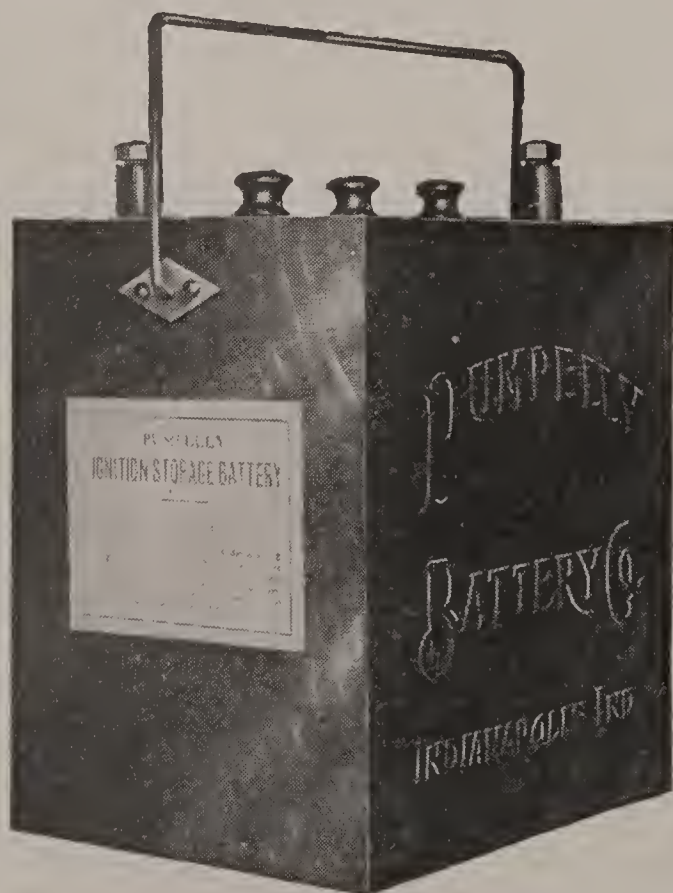 PUMPELLY
IGNITION STORAGE BATTERY
PUMPELLY
BATTERY CO.
INDIANAPOLIS IND